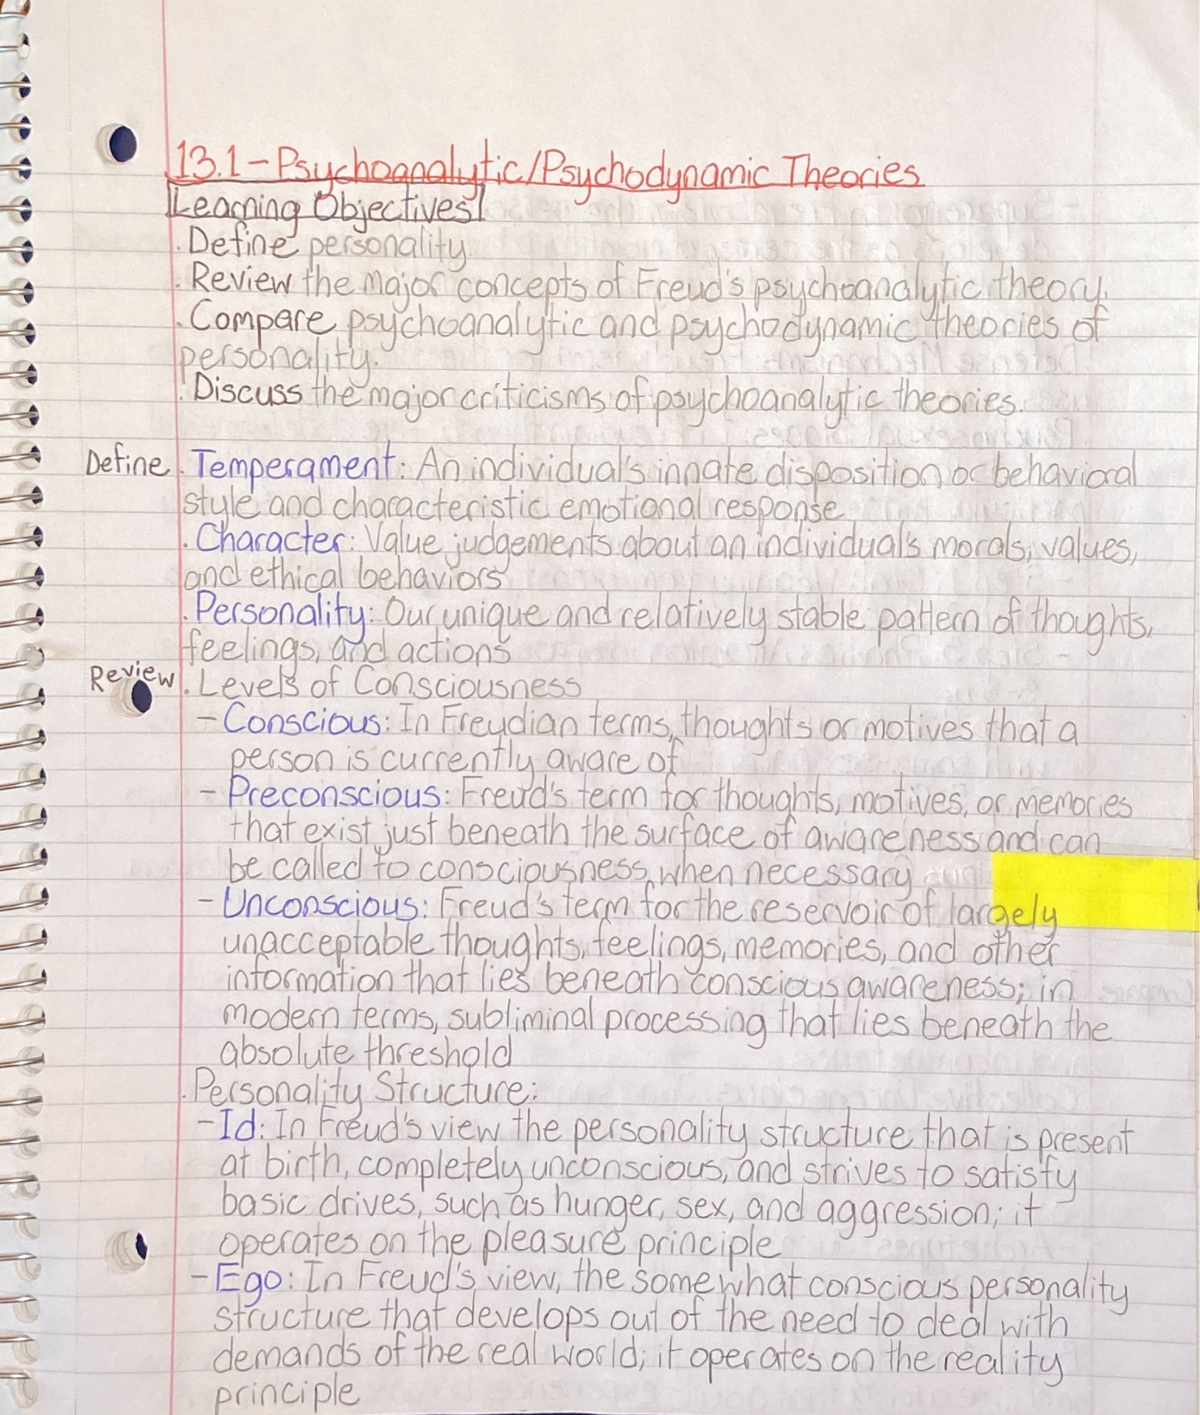 13.1 - Psychoanalytic/Psychodynamic Theories
Learning Objectives
· Define personality.
· Review the major concepts of Freud's psychoanalytic theory.
· Compare psychoanalytic and psychodynamic theories of
personality.
· Discuss the major criticisms of psychoanalytic theories.
Define · Temperament: An individual's innate disposition or behavioral
style and characteristic emotional response
· Character: Value judgements about an individual's morals, values,
and ethical behaviors
· Personality: Our unique and relatively stable pattern of thoughts,
feelings, and actions
Review · Levels of Consciousness
- Conscious: In Freudian terms, thoughts or motives that a
person is currently aware of
- Preconscious: Freud's term for thoughts, motives, or memories
that exist just beneath the surface of awareness and can
be called to consciousness when necessary
- Unconscious: Freud's term for the reservoir of largely
unacceptable thoughts, feelings, memories, and other
information that lies beneath conscious awareness; in
modern terms, subliminal processing that lies beneath the
absolute threshold
· Personality Structure:
- Id: In Freud's view the personality structure that is present
at birth, completely unconscious, and strives to satisfy
basic drives, such as hunger, sex, and aggression; it
operates on the pleasure principle
- Ego: In Freud's view, the somewhat conscious personality
structure that develops out of the need to deal with
demands of the real world; it operates on the reality
principle